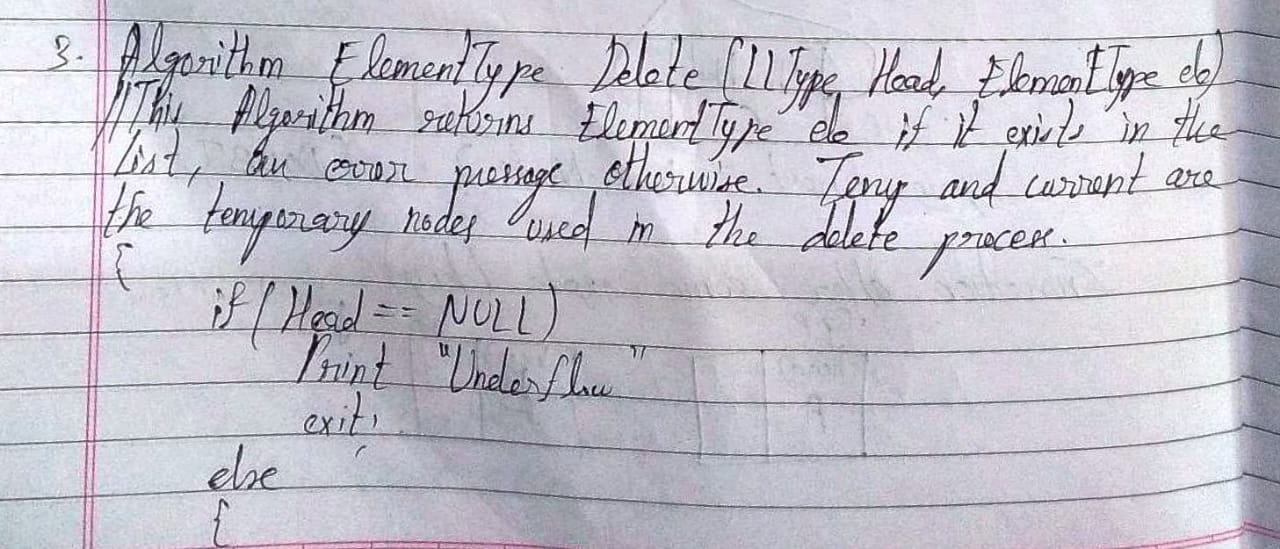 3. Algorithm ElementType Delete (LLType Head, ElementType ele)
//This Algorithm returns ElementType ele if it exists in the
List, an error message otherwise. Temp and current are
the temporary nodes used in the delete process.
{
if (Head == NULL)
Print "Underflow"
exit;
else
{